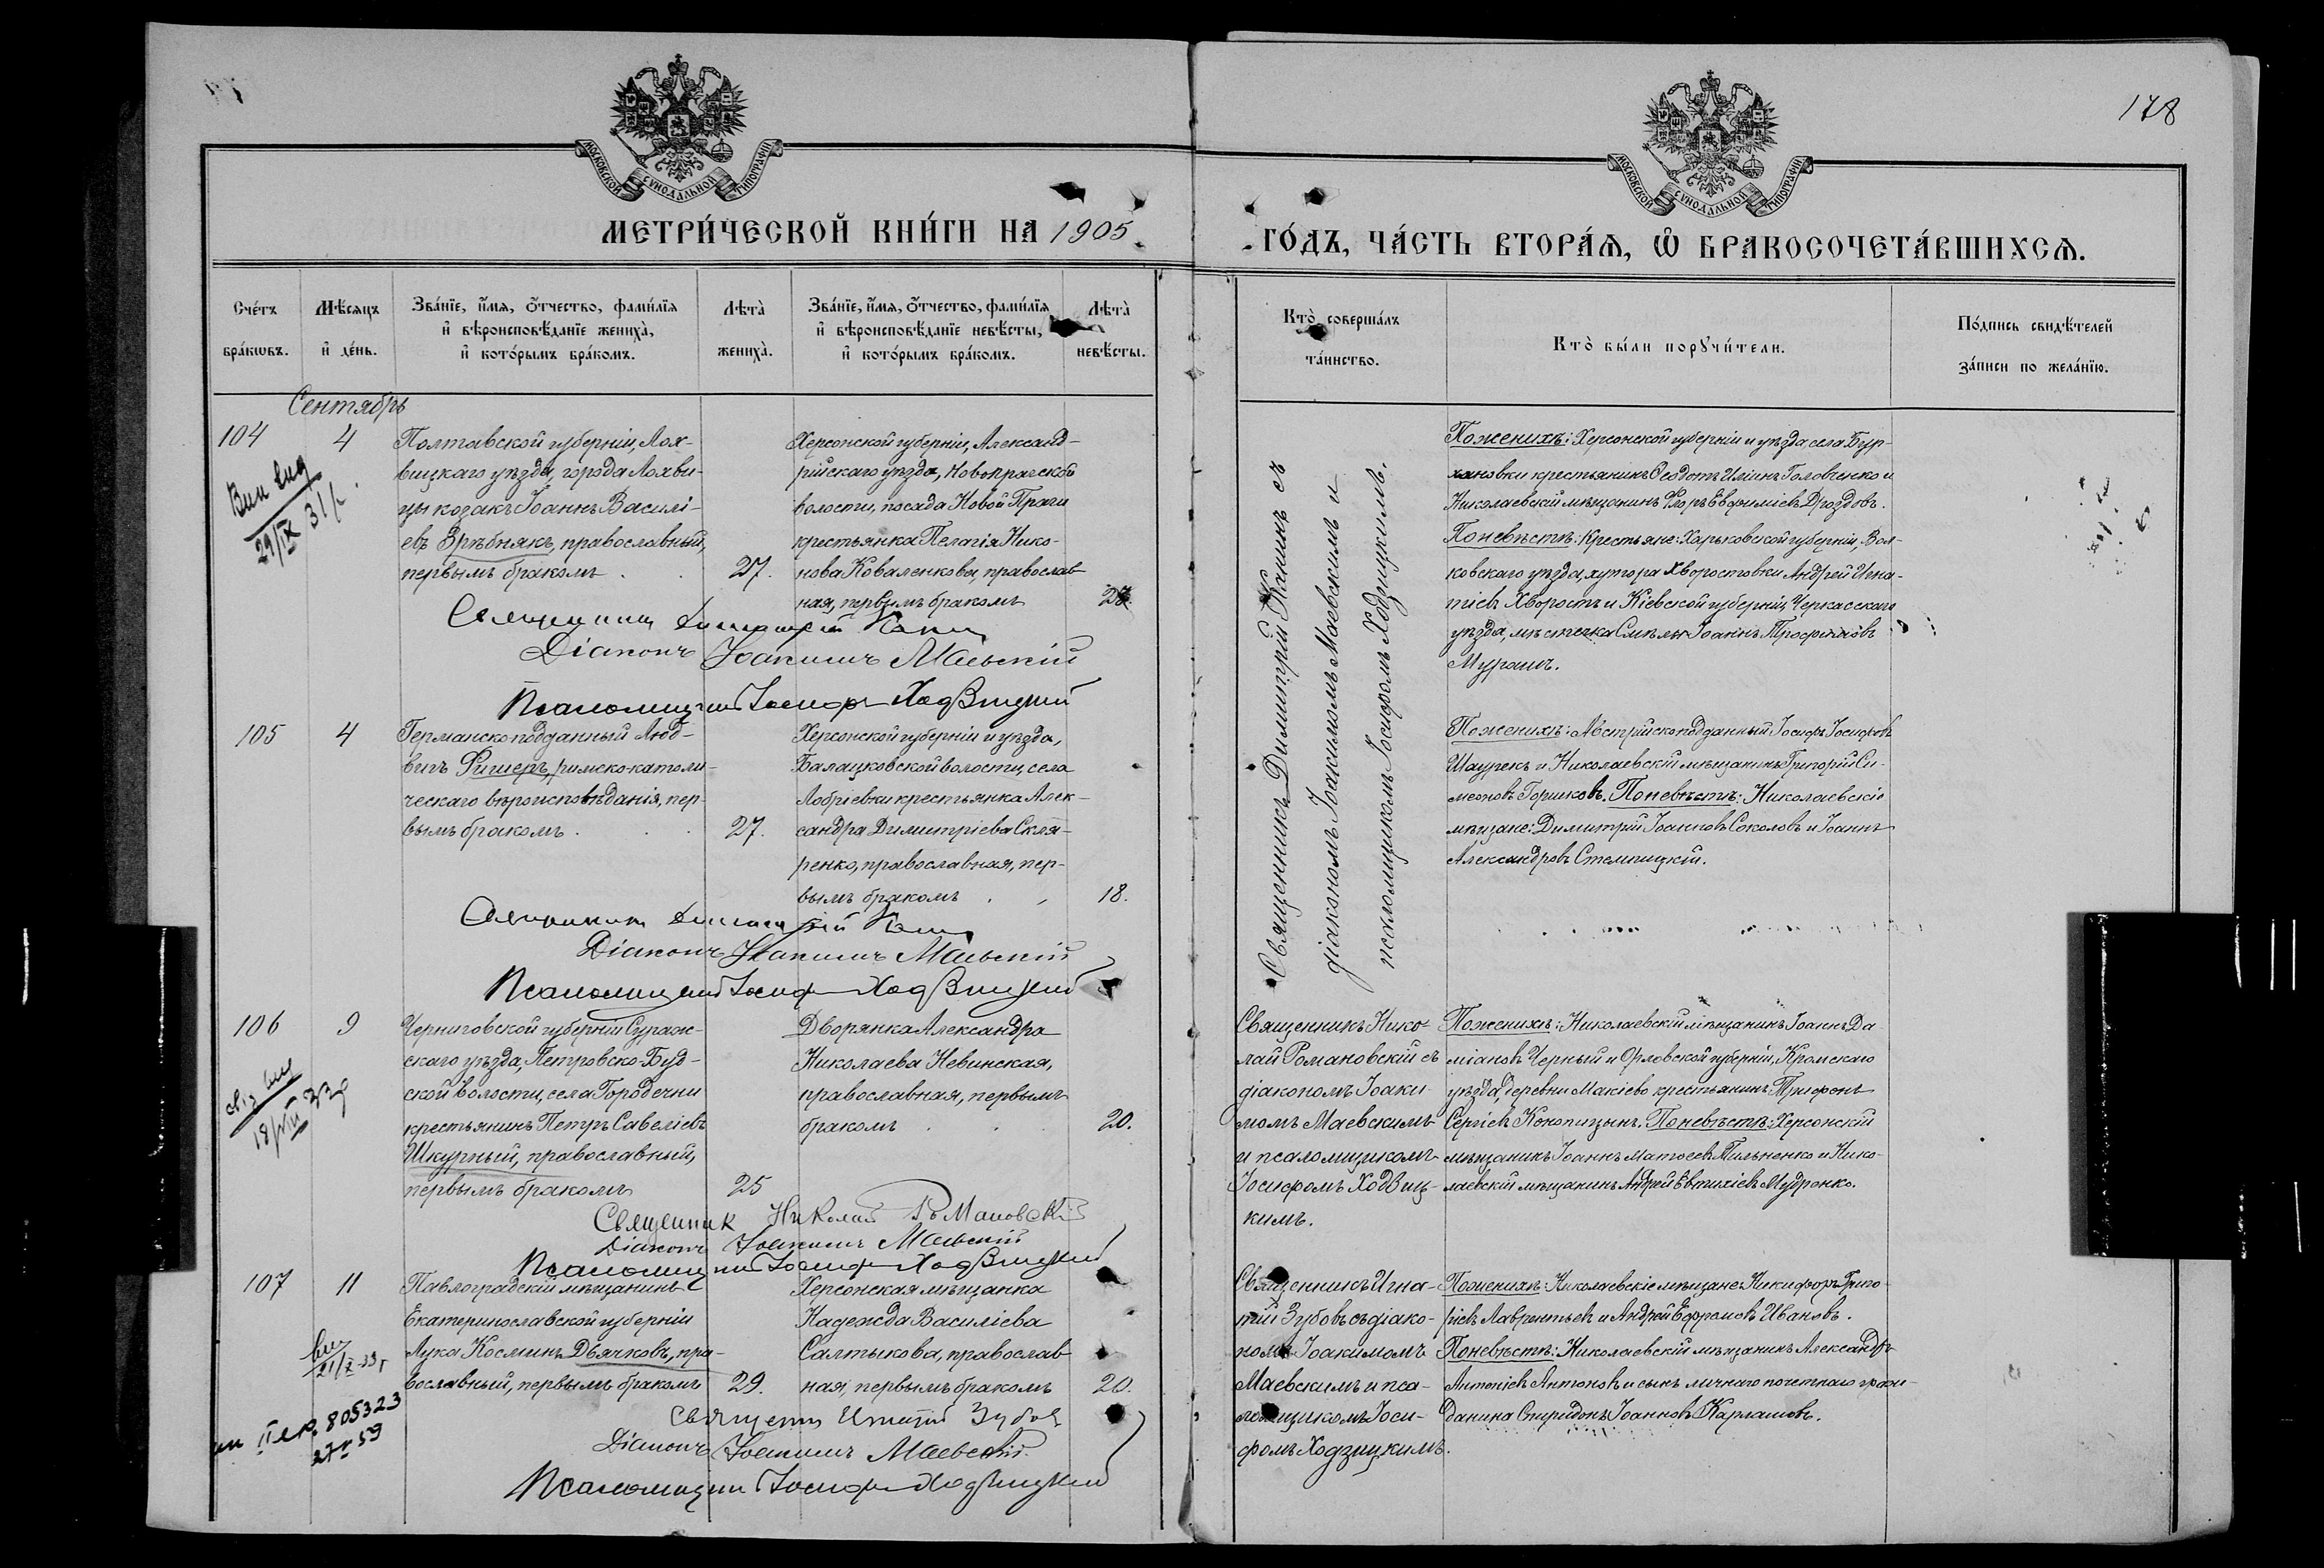 178
МОСКОВСКОЙ СѴНОДАЛЬНОЙ ТИПОГРАФІИ
МОСКОВСКОЙ СѴНОДАЛЬНОЙ ТИПОГРАФІИ
МЕТРИ́ЧЕСКОЙ КНИ́ГИ НА 1905
ГО́ДЪ, ЧА́СТЬ ВТОРА́Ѧ, Ѡ҆ БРАКОСОЧЕТА́ВШИХСѦ.
Сче́тъ
бра́кѡвъ.
Мѣ́сѧцъ
и҆ де́нь.
Зва́нїе, и҆́мѧ, ѻ҆́тчество, фами́лїѧ
и҆ вѣроисповѣ́данїе жениха̀,
и҆ кото́рымъ бра́комъ.
Лѣта̀
жениха̀.
Зва́нїе, и҆́мѧ, ѻ҆́тчество, фами́лїѧ
и҆ вѣроисповѣ́данїе невѣ́сты,
и҆ кото́рымъ бра́комъ.
Лѣта̀
невѣ́сты.
Кто̀ соверша́лъ
та́инство.
Кто̀ бы́ли порꙋчи́тели.
По́дпись свидѣ́телей
за́писи по жела́нїю.
Сентябрь
104
4
Полтавской губерніи, Лох-
вицкаго уѣзда, города Лохви-
цы козакъ Іоаннъ Василі-
евъ Зрѣбнякъ, православный,
первымъ бракомъ
27.
Херсонской губерніи, Александ-
рійскаго уѣзда, Новопрагской
волости, посада Новой Праги
крестьянка Пелагія Нико-
нова Коваленкова, православ-
ная, первымъ бракомъ
Священникъ Димитрій Каминъ съ
діакономъ Іоакимомъ Маевскимъ и
псаломщикомъ Іосифомъ Ходзицкимъ.
По женихѣ: Херсонской губерніи и уѣзда села Бур-
хановки крестьянинъ Ѳеодотъ Илiинъ Головченко и
Николаевскій мѣщанинъ Флоръ Евфиміевъ Дроздовъ.
По невѣстѣ: Крестьяне: Харьковской губерніи, Вал-
ковскаго уѣзда, хутора Хворостовки Андрей Игна-
тіевъ Хворостъ и Кіевской губерніи, Черкасскаго
уѣзда, мѣстечка Смѣлы Іоаннъ Трофимовъ
29/IX 31 г.
Діаконъ Іоакимъ Маевскій
Псаломщикъ Іосифъ Ходзицкій
105
4
Германскоподданный Люд-
вигъ Фишеръ, римско-католи-
ческаго вѣроисповѣданія, пер-
вымъ бракомъ
27.
Херсонской губерніи и уѣзда,
Балацковской волости, села
Добріевки крестьянка Алек-
сандра Димитріева Скля-
ренко, православная, пер-
вымъ бракомъ
18.
По женихѣ: Австрійскоподданный Іосифъ Іосифовъ
Шаурекъ и Николаевскій мѣщанинъ Григорій Си-
меоновъ Горшковъ. По невѣстѣ: Николаевскіе
мѣщане: Димитрій Іоанновъ Соколовъ и Іоаннъ
Александровъ Стемпицкій.
Діаконъ Іоакимъ Маевскій
Псаломщикъ Іосифъ Ходзицкій
106
9
Черниговской губерніи Сураж-
скаго уѣзда, Петровско-Буд-
ской волости, села Городечни
крестьянинъ Петръ Савеліевъ
Шкурный, православный,
первымъ бракомъ
25
Дворянка Александра
Николаева Невинская,
православная, первымъ
бракомъ
20.
Священникъ Нико-
лай Романовскій съ
діакономъ Іоаки-
момъ Маевскимъ
и псаломщикомъ
Іосифомъ Ходзиц-
кимъ.
По женихѣ: Николаевскій мѣщанинъ Іоаннъ Да-
міановъ Черный и Орловской губерніи, Кромскаго
уѣзда, деревни Макіево крестьянинъ Трифонъ
Сергіевъ Конопицынъ. По невѣстѣ: Херсонскій
мѣщанинъ Іоаннъ Матѳеевъ Пильненко и Нико-
лаевскій мѣщанинъ Андрей Евтихіевъ Мудренко.
Священник Николай Романовскій
Діаконъ Іоакимъ Маевскій
Псаломщикъ Іосифъ Ходзицкій
107
11
Павлоградскій мѣщанинъ
Екатеринославской губерніи
Лука Косминъ Дьячковъ, пра-
вославный, первымъ бракомъ
29.
Херсонская мѣщанка
Надежда Василіева
Салтыкова, православ-
ная, первымъ бракомъ
20.
Священникъ Игна-
тій Зубовъ съ діако-
номъ Іоакимомъ
Маевскимъ и пса-
ломщикомъ Іоси-
фомъ Ходзицкимъ.
По женихѣ: Николаевскіе мѣщане: Никифоръ Григо-
ріевъ Лаврентьевъ и Андрей Ефремовъ Ивановъ.
По невѣстѣ: Николаевскій мѣщанинъ Александръ
Антоніевъ Антоновъ и сынъ личнаго почетнаго граж-
данина Спиридонъ Іоанновъ Карламовъ.
21/X-33 г
805323
27 V 59
Игнатій Зубовъ
Діаконъ Іоакимъ Маевскій
Псаломщикъ Іосифъ Ходзицкій